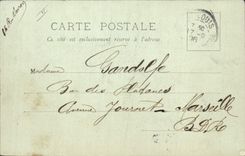 CARTE POSTALE
Ce côté est exclusivement réservé à l'adresse.
Madame Gandolfe
Bar des Platanes
Avenue Journet - Marseille
B.D.R